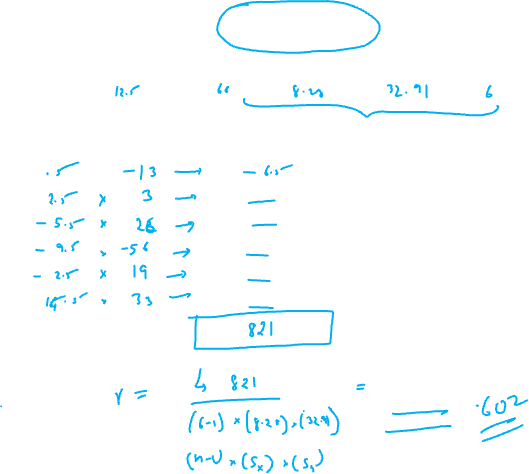 12.5 66 8.20 32.91 6
.5 -13 → -6.5
2.5 × 3 →
-5.5 × 26 →
-9.5 × -56 →
-2.5 × 19 →
14.5 × 33 →
821
r = 821 =
(6-1) × (8.20) × (32.91) .602
(n-1) × (Sx) × (Sy)